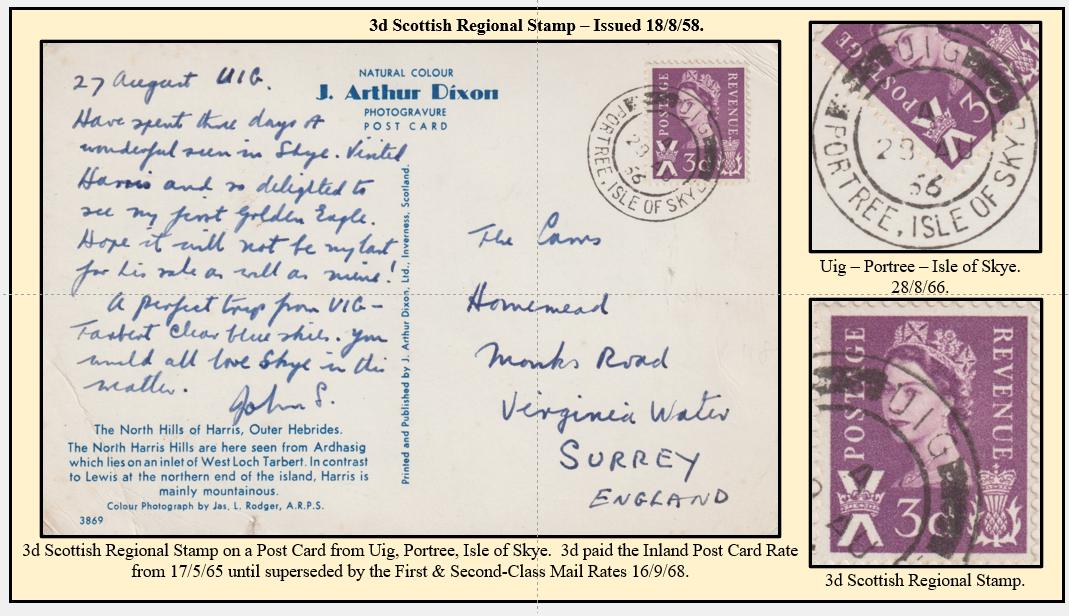 3d Scottish Regional Stamp – Issued 18/8/58.
27 August UIG.
Have spent three days of
wonderful sun in Skye. Visited
Harris and so delighted to
see my first Golden Eagle.
Hope it will not be my last
for his sake as well as mine!
A perfect trip from UIG –
Tarbert clear blue skies. You
would all love Skye in this
weather.
John S.
The North Hills of Harris, Outer Hebrides.
The North Harris Hills are here seen from Ardhasig
which lies on an inlet of West Loch Tarbert. In contrast
to Lewis at the northern end of the island, Harris is
mainly mountainous.
Colour Photograph by Jas. L. Rodger, A.R.P.S.
3869
NATURAL COLOUR
J. Arthur Dixon
PHOTOGRAVURE
POST CARD
Printed and Published by J. Arthur Dixon, Ltd., Inverness, Scotland.
POSTAGE
REVENUE
3d
UIG
28 AU
66
PORTREE, ISLE OF SKYE
The
Homemead
Monks Road
Virginia Water
SURREY
ENGLAND
3d Scottish Regional Stamp on a Post Card from Uig, Portree, Isle of Skye. 3d paid the Inland Post Card Rate
from 17/5/65 until superseded by the First & Second-Class Mail Rates 16/9/68.
POSTAGE
3d
UIG
A
28 AU
66
PORTREE, ISLE OF SKYE
Uig – Portree – Isle of Skye.
28/8/66.
POSTAGE
REVENUE
UIG
A
AU
3d
3d Scottish Regional Stamp.